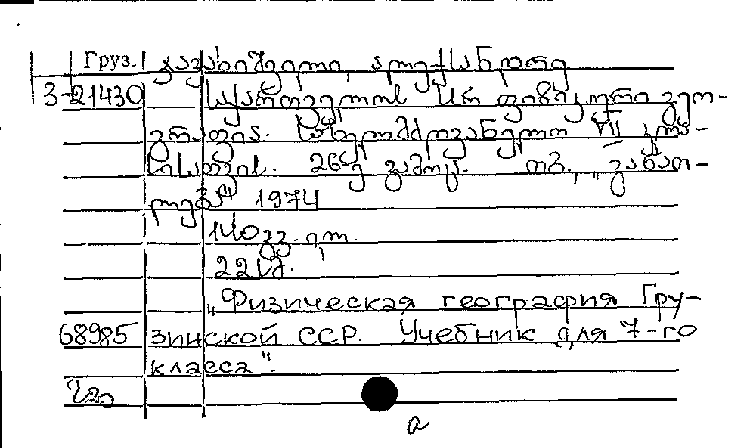 Груз. ჯავახიშვილი, ალექსანდრე
3-21430 საქართველოს სსრ ფიზიკური გეო-
გრაფია. სახელმძღვანელო VII კლა-
სისათვის. 26-ე გამოც. თბ., „განათ-
ლება" 1974
140 გვ. ილ.
22 კ.
„Физическая география Гру-
68985 зинской ССР. Учебник для 7-го
класса".